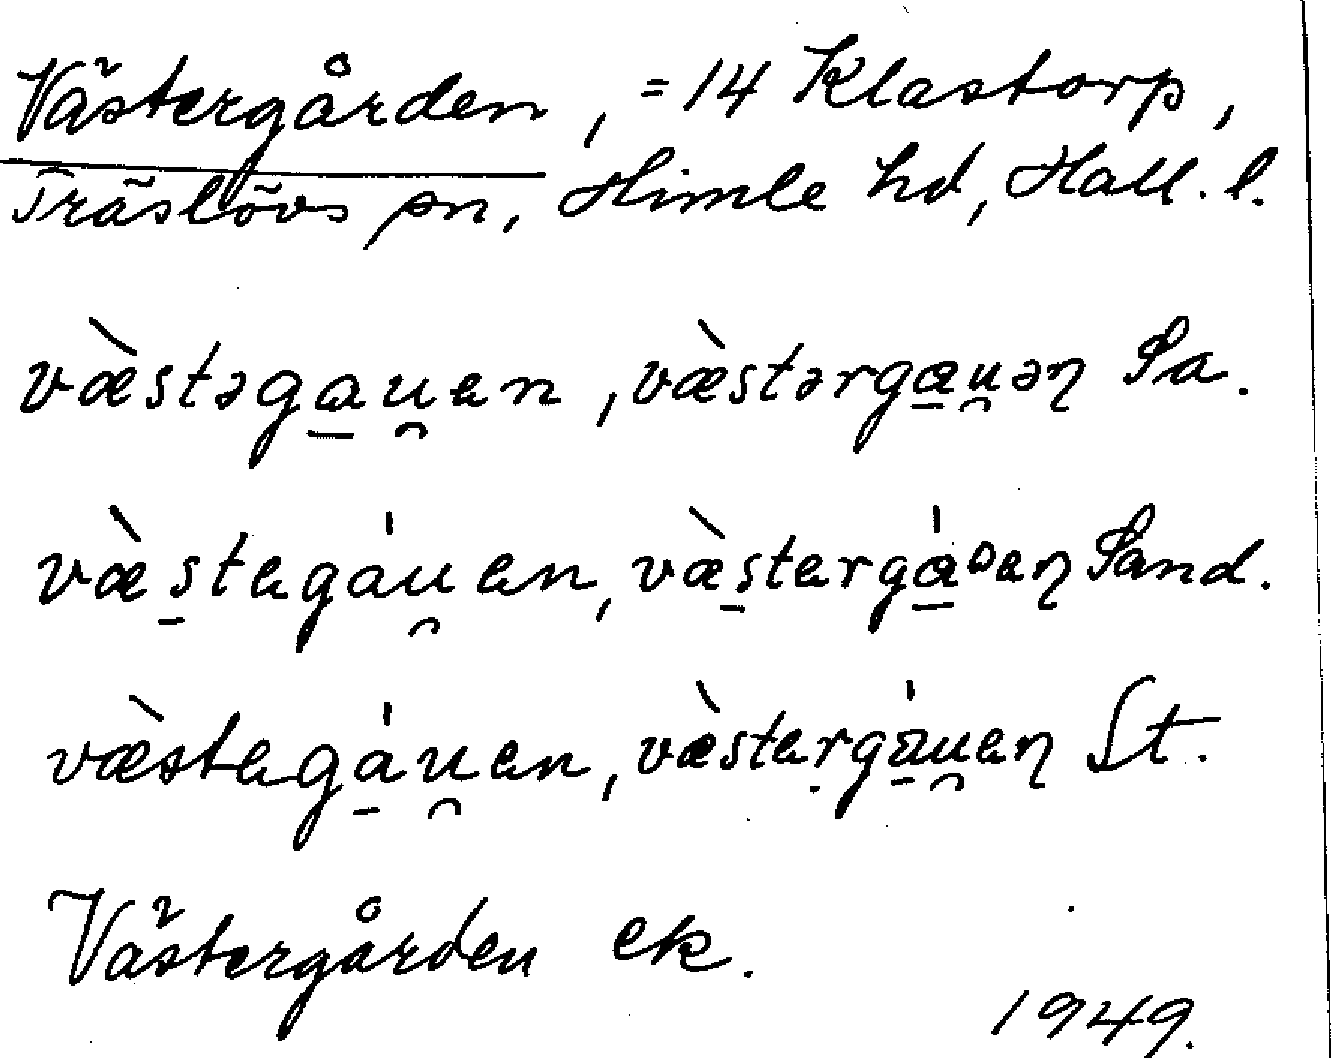 Västergården, = 14 Klastorp,
Träslövs sn, Himle hd, Hall. l.
væ̀stəga̠u̯en, væ̀stərga̠u̯əꞃ Sa.
væ̀s̠tegáu̯en, væ̀s̠tergá̠ʋeꞃ Sand.
væ̀stegá̠u̯en, væ̀steṛgá̠u̯eꞃ St.
Västergården ek.
1949.